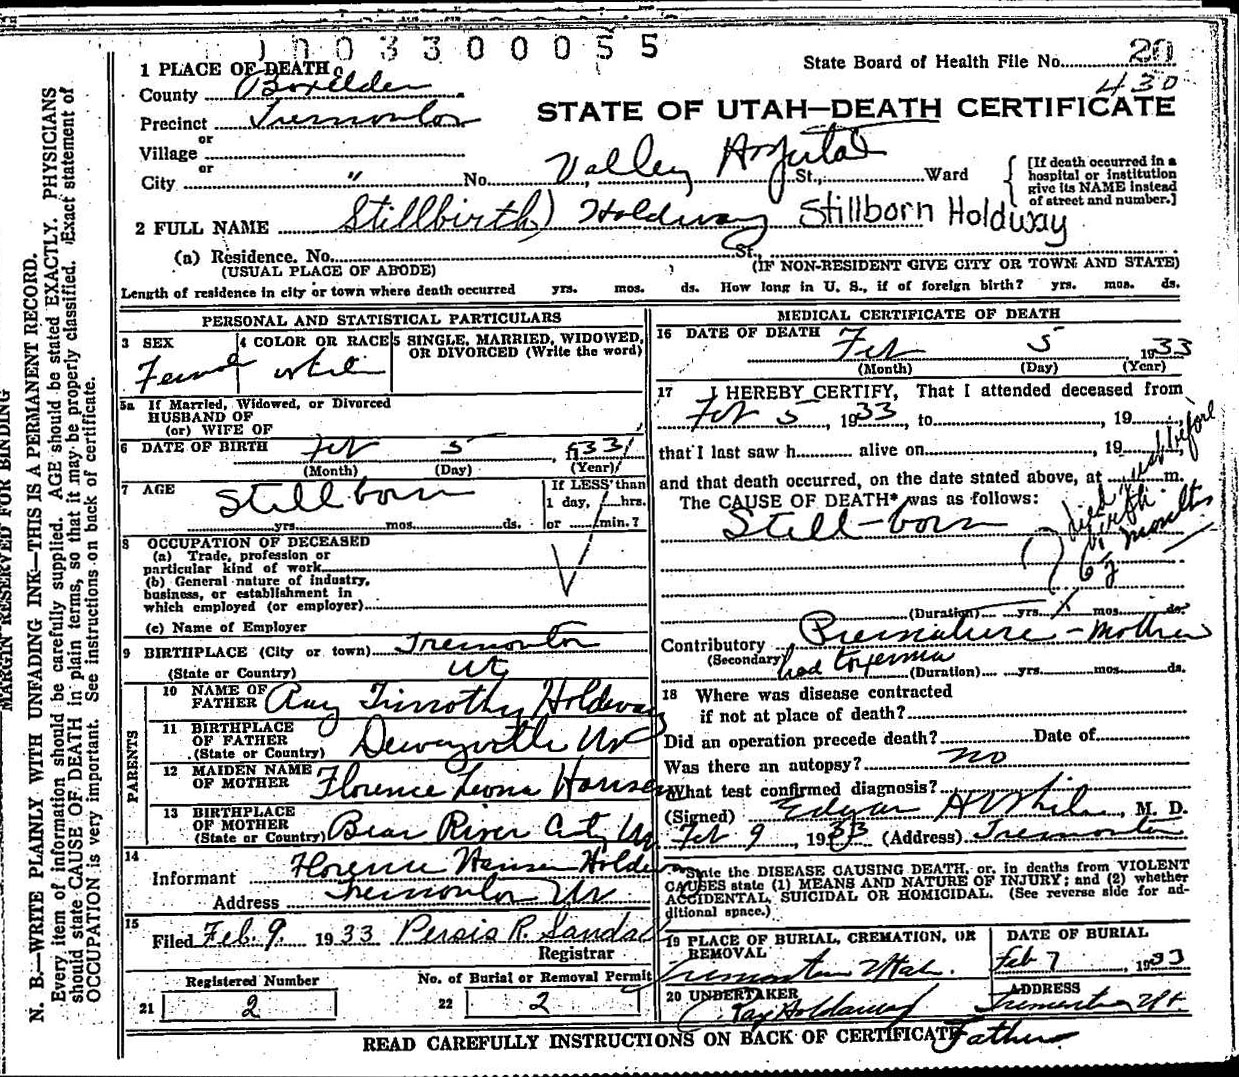 1003300055
State Board of Health File No. 20
430
1 PLACE OF DEATH
County Boxelder
STATE OF UTAH—DEATH CERTIFICATE
Precinct Tremonton
or
Village
or
City " No. Valley Hospital St., Ward
[If death occurred in a hospital or institution give its NAME instead of street and number.]
2 FULL NAME (Stillbirth) Holdway Stillborn Holdway
(a) Residence. No. St.,
(USUAL PLACE OF ABODE) (IF NON-RESIDENT GIVE CITY OR TOWN AND STATE)
Length of residence in city or town where death occurred yrs. mos. ds. How long in U. S., if of foreign birth? yrs. mos. ds.
PERSONAL AND STATISTICAL PARTICULARS
3 SEX Female
4 COLOR OR RACE white
5 SINGLE, MARRIED, WIDOWED, OR DIVORCED (Write the word)
5a If Married, Widowed, or Divorced
HUSBAND OF
(or) WIFE OF
6 DATE OF BIRTH Feb 5, 1933
(Month) (Day) (Year)
7 AGE Still born
yrs. mos. ds.
If LESS than
1 day, hrs.
or min.?
8 OCCUPATION OF DECEASED
(a) Trade, profession or
particular kind of work
(b) General nature of industry,
business, or establishment in
which employed (or employer)
(c) Name of Employer
9 BIRTHPLACE (City or town) Tremonton
(State or Country) Ut
PARENTS
10 NAME OF FATHER Ray Timothy Holdway
11 BIRTHPLACE OF FATHER (State or Country) Deweyville Ut
12 MAIDEN NAME OF MOTHER Florence Leona Hansen
13 BIRTHPLACE OF MOTHER (State or Country) Bear River City Ut
14
Informant Florence Hansen Holdway
Address Tremonton Ut
15
Filed Feb. 9, 1933 Persis R. Sandal
Registrar
Registered Number
21 2
No. of Burial or Removal Permit
22 2
MEDICAL CERTIFICATE OF DEATH
16 DATE OF DEATH Feb 5 1933
(Month) (Day) (Year)
17 I HEREBY CERTIFY, That I attended deceased from
Feb 5, 1933, to , 19
that I last saw h alive on , 19
and that death occurred, on the date stated above, at m.
The CAUSE OF DEATH* was as follows:
Still-born
died just before
birth.
6½ months
(Duration) yrs. mos. ds.
Contributory Premature - Mother
(Secondary) had toxemia (Duration) yrs. mos. ds.
18 Where was disease contracted
if not at place of death?
Did an operation precede death? Date of
Was there an autopsy? no
What test confirmed diagnosis?
(Signed) Edgar H White, M. D.
Feb 9, 1933 (Address) Tremonton
*State the DISEASE CAUSING DEATH, or, in deaths from VIOLENT
CAUSES state (1) MEANS AND NATURE OF INJURY; and (2) whether
ACCIDENTAL, SUICIDAL OR HOMICIDAL. (See reverse side for ad-
ditional space.)
19 PLACE OF BURIAL, CREMATION, OR REMOVAL
Tremonton Utah.
DATE OF BURIAL
Feb 7, 1933
20 UNDERTAKER
Ray Holdaway
Father
ADDRESS
Tremonton Ut.
READ CAREFULLY INSTRUCTIONS ON BACK OF CERTIFICATE
MARGIN RESERVED FOR BINDING
N. B.—WRITE PLAINLY WITH UNFADING INK—THIS IS A PERMANENT RECORD.
Every item of information should be carefully supplied. AGE should be stated EXACTLY. PHYSICIANS
should state CAUSE OF DEATH in plain terms, so that it may be properly classified. Exact statement of
OCCUPATION is very important. See instructions on back of certificate.